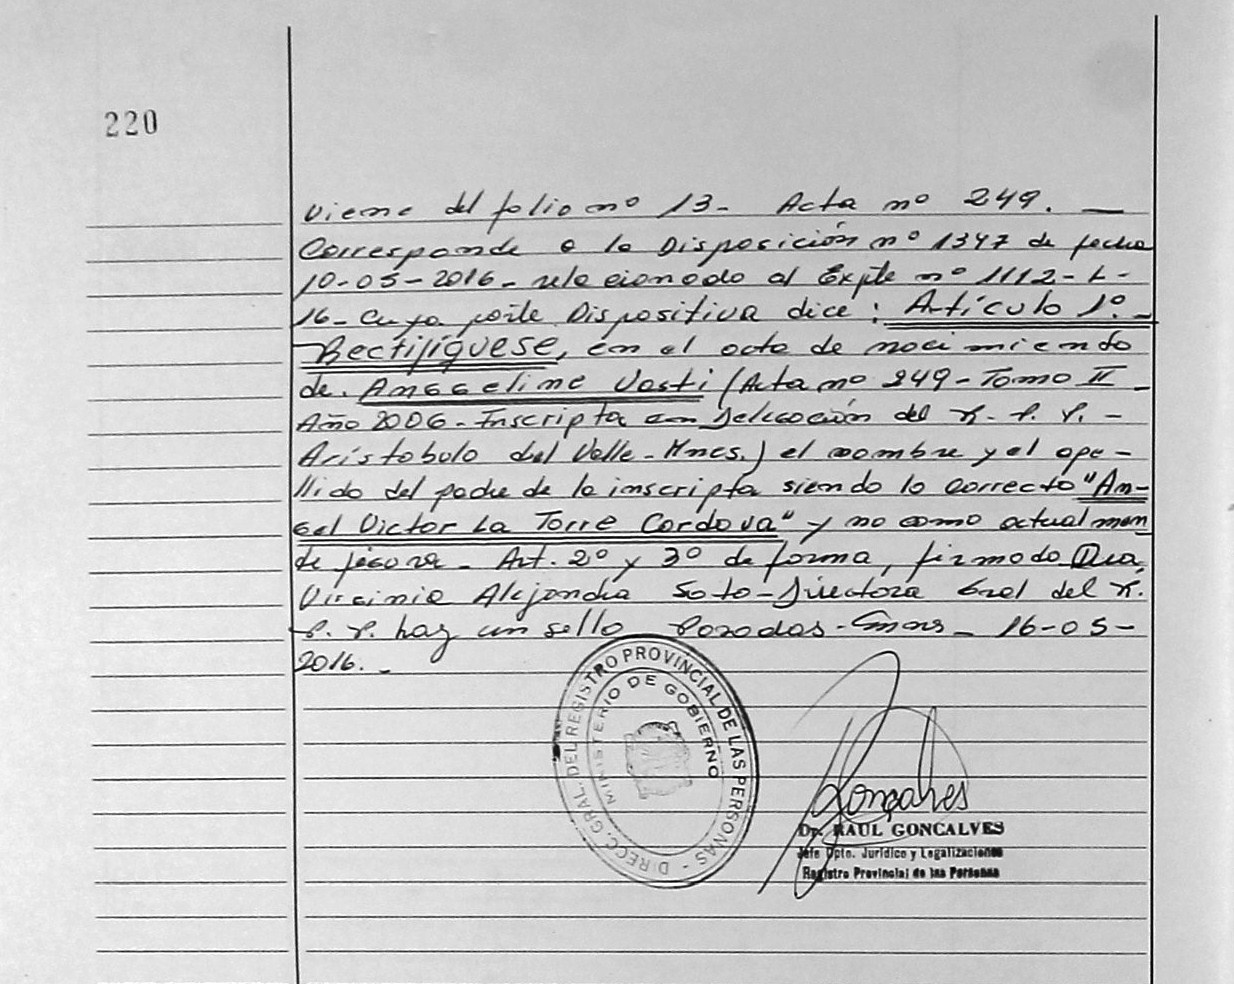 220
Viene del folio nº 13- Acta nº 249. —
Corresponde a la Disposición nº 1347 de fecha
10-05-2016- relacionado al Expte nº 1112-L-
16- Cuya parte Dispositiva dice: Artículo 1º.-
Rectifíquese, en el acta de nacimiento
de. Anggeline Vasti (Acta nº 249- Tomo II -
Año 2006- Inscripta en Delegación del R. P. P. -
Aristobulo del Valle- Mnes.) el nombre y el ape-
llido del padre de la inscripta siendo lo correcto "An-
gel Victor La Torre Cordova" y no como actualmen
te figura- Art. 2º y 3º de forma, firmado Dra.
Virginia Alejandra Soto- Directora Gral del R.
P. P. hay un sello Posadas- Mnes- 16-05-
2016.-
DIRECC. GRAL. DEL REGISTRO PROVINCIAL DE LAS PERSONAS -
MINISTERIO DE GOBIERNO
Goncalves
Dr. RAUL GONCALVES
Jefe Dpto. Jurídico y Legalizaciones
Registro Provincial de las Personas